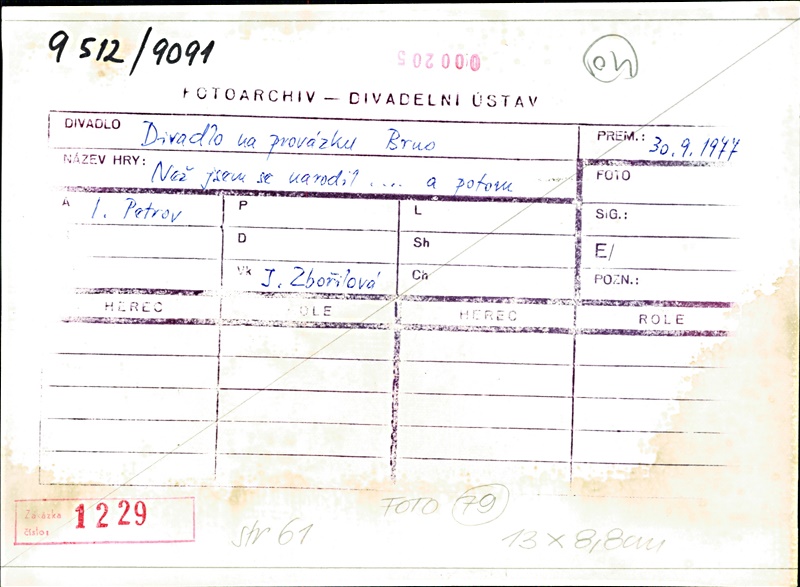 9512/9091
000205
FOTOARCHIV — DIVADELNÍ ÚSTAV
DIVADLO Divadlo na provázku Brno
PREM.: 30.9.1977
NÁZEV HRY: Než jsem se narodil .... a potom
FOTO
A I. Petrov
P
L
SIG.:
D
Sh
E/
Vk J. Zbořilová
Ch
POZN.:
HEREC ROLE HEREC ROLE
Zakázka
číslo: 1229
FOTO 79
str 61
13 x 8,8cm